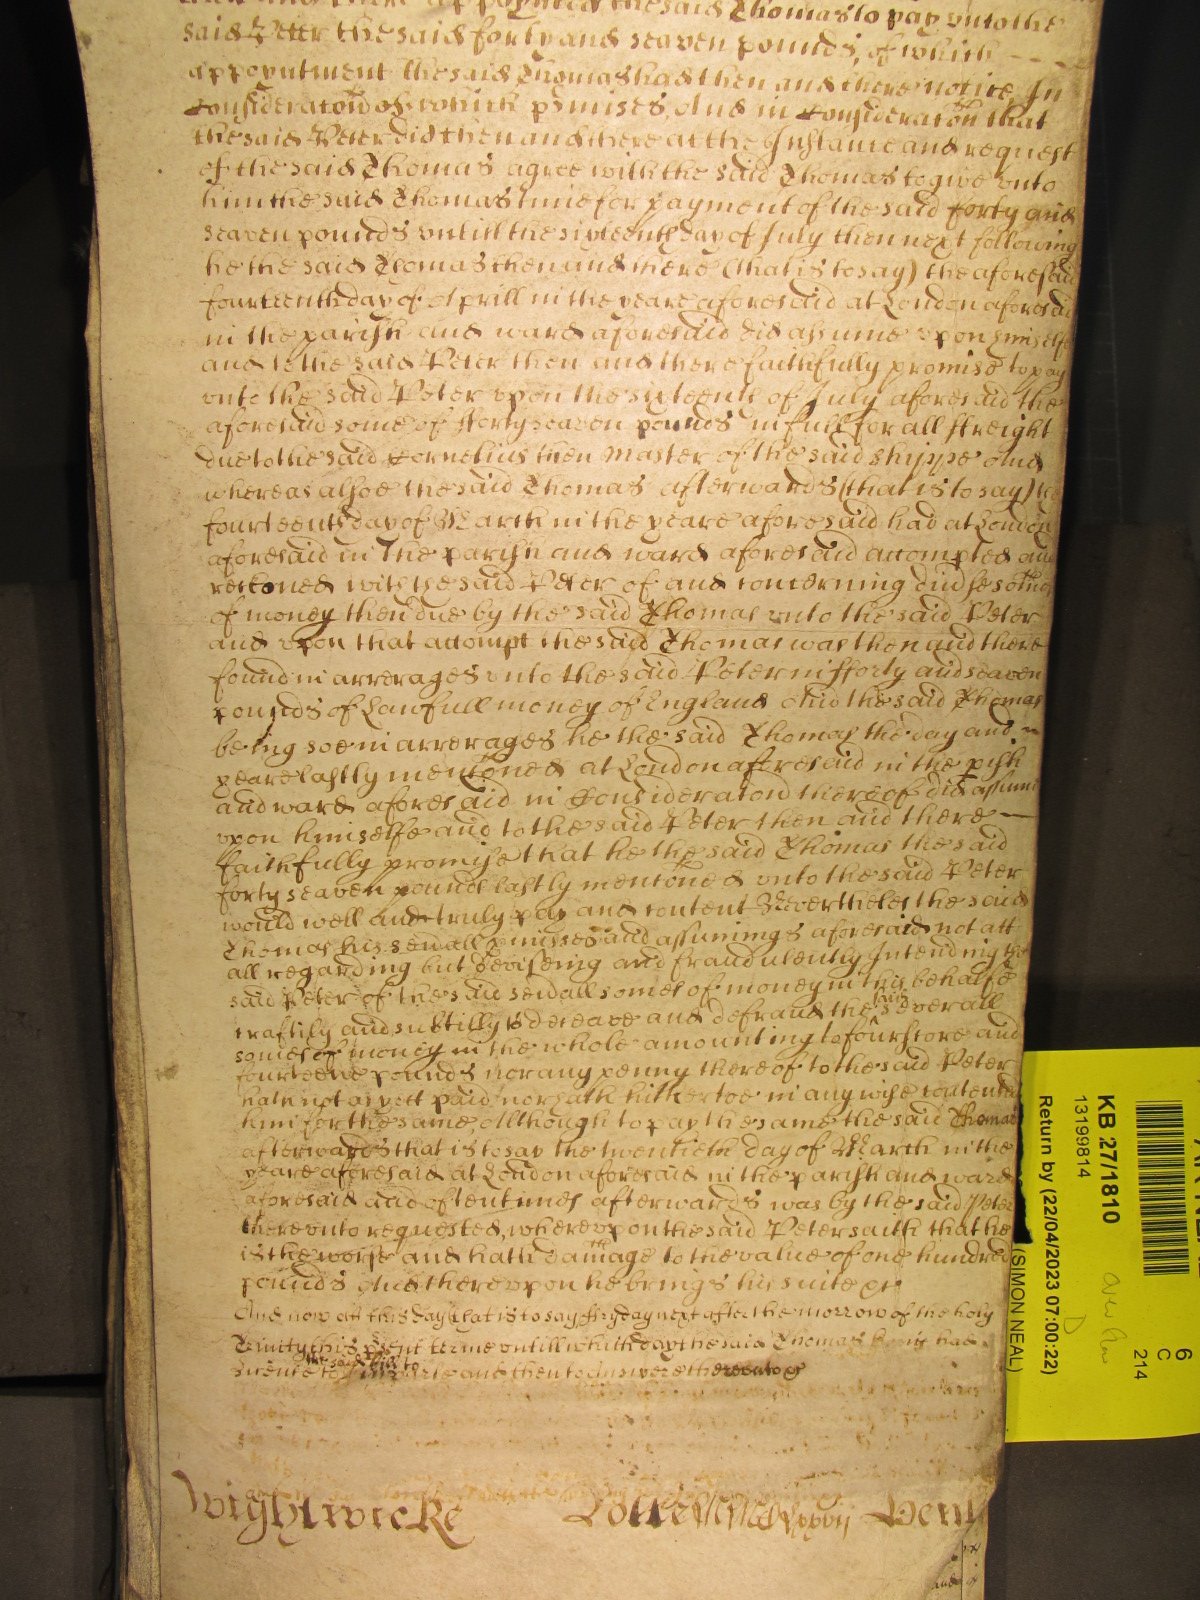 then and there appoynted the said Thomas to pay vnto the
said Peter the said forty and seaven pounds, of which
appoyntment the said Thomas had then and there notice, In
Consideration of which pmises And in Consideration that
the said Peter did then and there at the Instance and request
of the said Thomas agree with the said Thomas to give vnto
him the said Thomas time for payment of the said forty and
seaven pounds vntill the sixteenth day of July then next following
he the said Thomas then and there (that is to say) the aforesaid
fourteenth day of Aprill in the yeare aforesaid at London aforesaid
in the parish and ward aforesaid did assume vpon himselfe
and to the said Peter then and there faithfully promise to pay
vnto the said Peter vpon the sixteenth of July aforesaid the
aforesaid some of fforty seaven pounds in full for all ffreight
due to the said Cornelius then Master of the said shippe And
whereas alsoe the said Thomas afterwards (that is to say) the
fourteenth day of March in the yeare aforesaid had at London
aforesaid in the parish and ward aforesaid accompted and
reckoned with the said Peter of and concerning divse somes
of money then due by the said Thomas vnto the said Peter
and vpon that accompt the said Thomas was then and there
found in arrerages vnto the said Peter in fforty and seaven
pounds of Lawfull money of England And the said Thomas
being soe in arrerages he the said Thomas the day and
yeare lastly mentoned at London aforesaid in the pish
and ward aforesaid in Consideraton thereof did assume
vpon himselfe and to the said Peter then and there
faithfully promise that he the said Thomas the said
forty seaven pounds lastly mentoned vnto the said Peter
would well and truly pay and content Neverthelesse the said
Thomas his sevall pmisses and assumings aforesaid not att
all regarding but deviseing and fraudulently Intending the
said Peter of the said sevall somes of money in this behalfe
craftily and subtilly to deceave and defraud the said severall
somes of money in the whole amounting to fourscore and
fourteene pounds nor any penny thereof to the said Peter
hath not as yett paid nor hath hithertoe in any wise contented
him for the same, Although to pay the same the said Thomas
afterwards that is to say the twentieth day of March in the
yeare aforesaid at London aforesaid in the parish and ward
aforesaid and oftentimes afterwards was by the said Peter
therevnto requested, wherevpon the said Peter saith that he
is the worse and hath damage to the value of one hundred
pounds And therevpon he brings his suite &c
And now att this day that is to say ffryday next after the morrow of the holy
Trinity this psent terme vntill which day the said Thomas had
licence to the said bill to imparle and then to answere therevnto &c
Wightwicke
Rolle
Lxxvij
KB 27/1810
13199814
Return by (22/04/2023 07:00:22)
(SIMON NEAL)
6
C
214
D